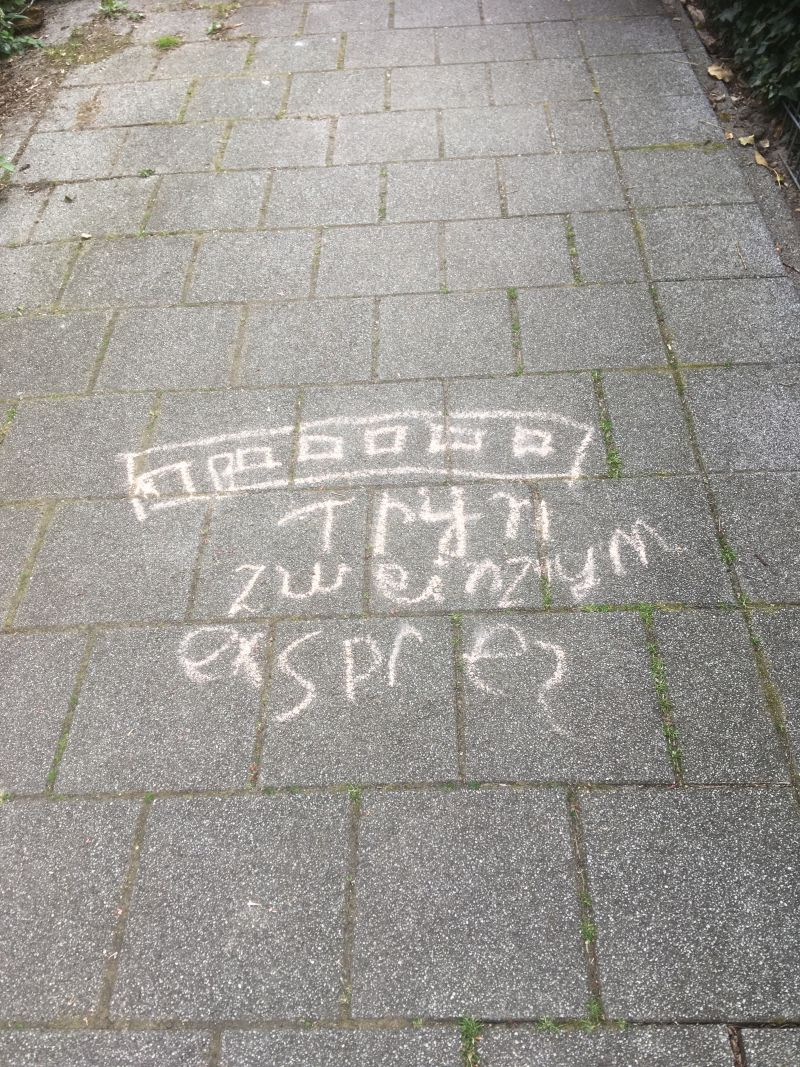 Tryn
zweinzym
exsprez